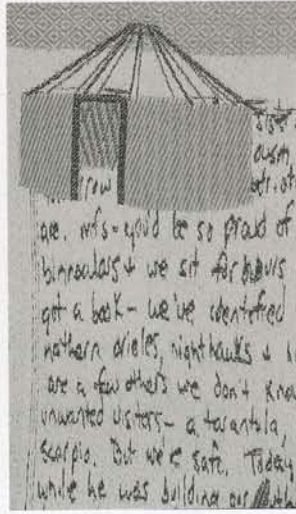 are. mfs - you'd be so proud of
binoculars & we sit for hours
got a book - we've identified
northern orioles, nighthawks &
are a few others we don't know
unwanted visitors - a tarantula,
scorpio. But we're safe. Today
while he was building our